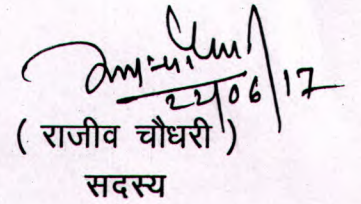 22/06/17
( राजीव चौधरी )
सदस्य